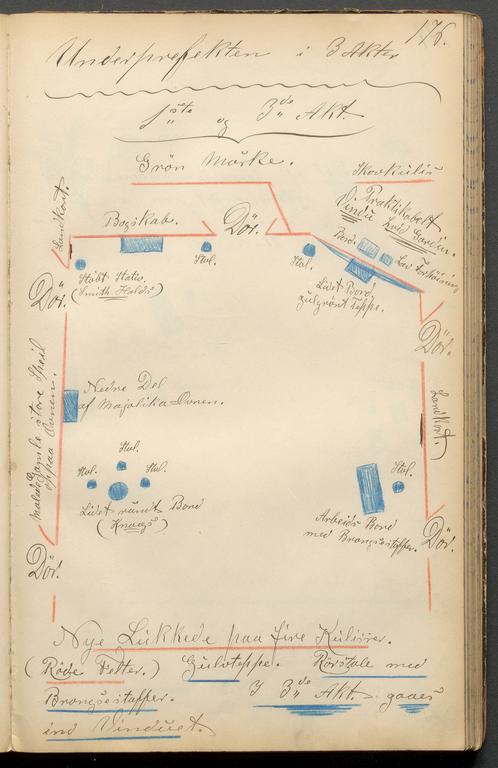 176.
Underprefekten i 3 Akter
1ste og 3die Akt.
Grön Mörke.
Skovkulis
Praktikabelt
Vindu
hvid Gardin.
Landkort.
Bogskab.
Dör.
Bord.
Lav Forhöining
Stol.
Stol.
Stöbt Stativ
(Smith Halds)
Lidet Bord
gulgrönt Teppe.
Dör.
Dör.
Malede gamle store Speil
oppaa Ovnen.
Nedre Del
af Majolika-Ovnen.
Landkort.
Stol.
Stol.
Stol.
Stol.
Lidet rundt Bord
(Knags)
Arbeids Bord
med Brongsestopper.
Dör.
Dör.
Nye Lukkede paa fire Kulisser.
(Röde Potter.) Gulvteppe. Rörstole med
Brongsestopper. I 3die Akt. gaaes
ind Vinduet.